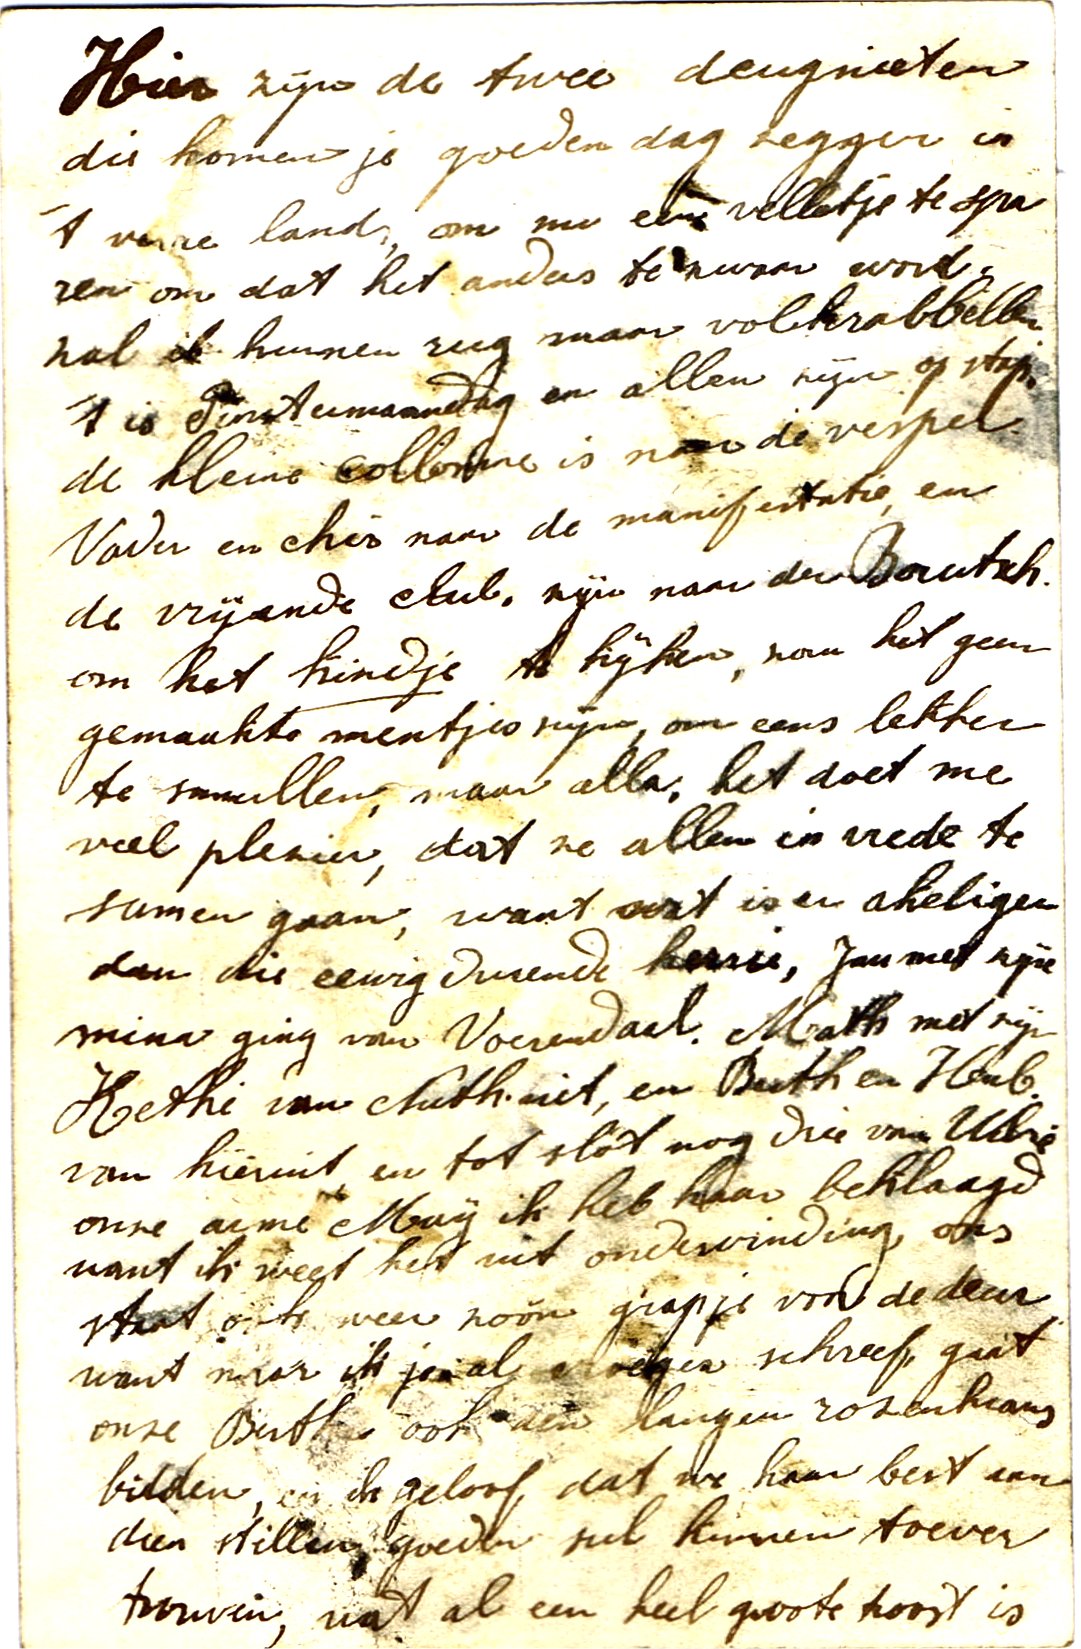 Hier zijn de twee deugnieten
die komen je goeden dag zeggen in
't verre land, om nu een velletje te spa
ren om dat het anders te zwaar word,
zal ik hunnen rug maar volkrabbellen
't is Pinstermaandag en allen zijn op stap.
de kleine collonne is naar de vesper
Vader en chir naar de manifestatie, en
de vrijende club. zijn naar den Boutsch.
om het kindje te kijken, zou het geen
gemaakte mentjes zijn, om eens lekker
te smullen, maar alla, het doet me
veel plezier, dat ze allen in vrede te
samen gaan, want wat is er akeliger
dan die eewig durende herrie, Jan met zijn
mina ging van Voerendaal. Math met zijn
Kethi van Nuth. uit, en Buth en Hub.
van hieruit en tot slot nog drie van
onze arme Maij ik heb haar beklaagd
want ik weet het uit ondervinding, ons
staat ook weer zoon grapje voor de deur
want naar ik je al schreef, gaat
onze Buth ook den langen rozenkrans
bidden, en ik geloof, dat we haar best aan
den stillen, goeden zul kunnen toever
trouwen, wat al een heel groote troost is